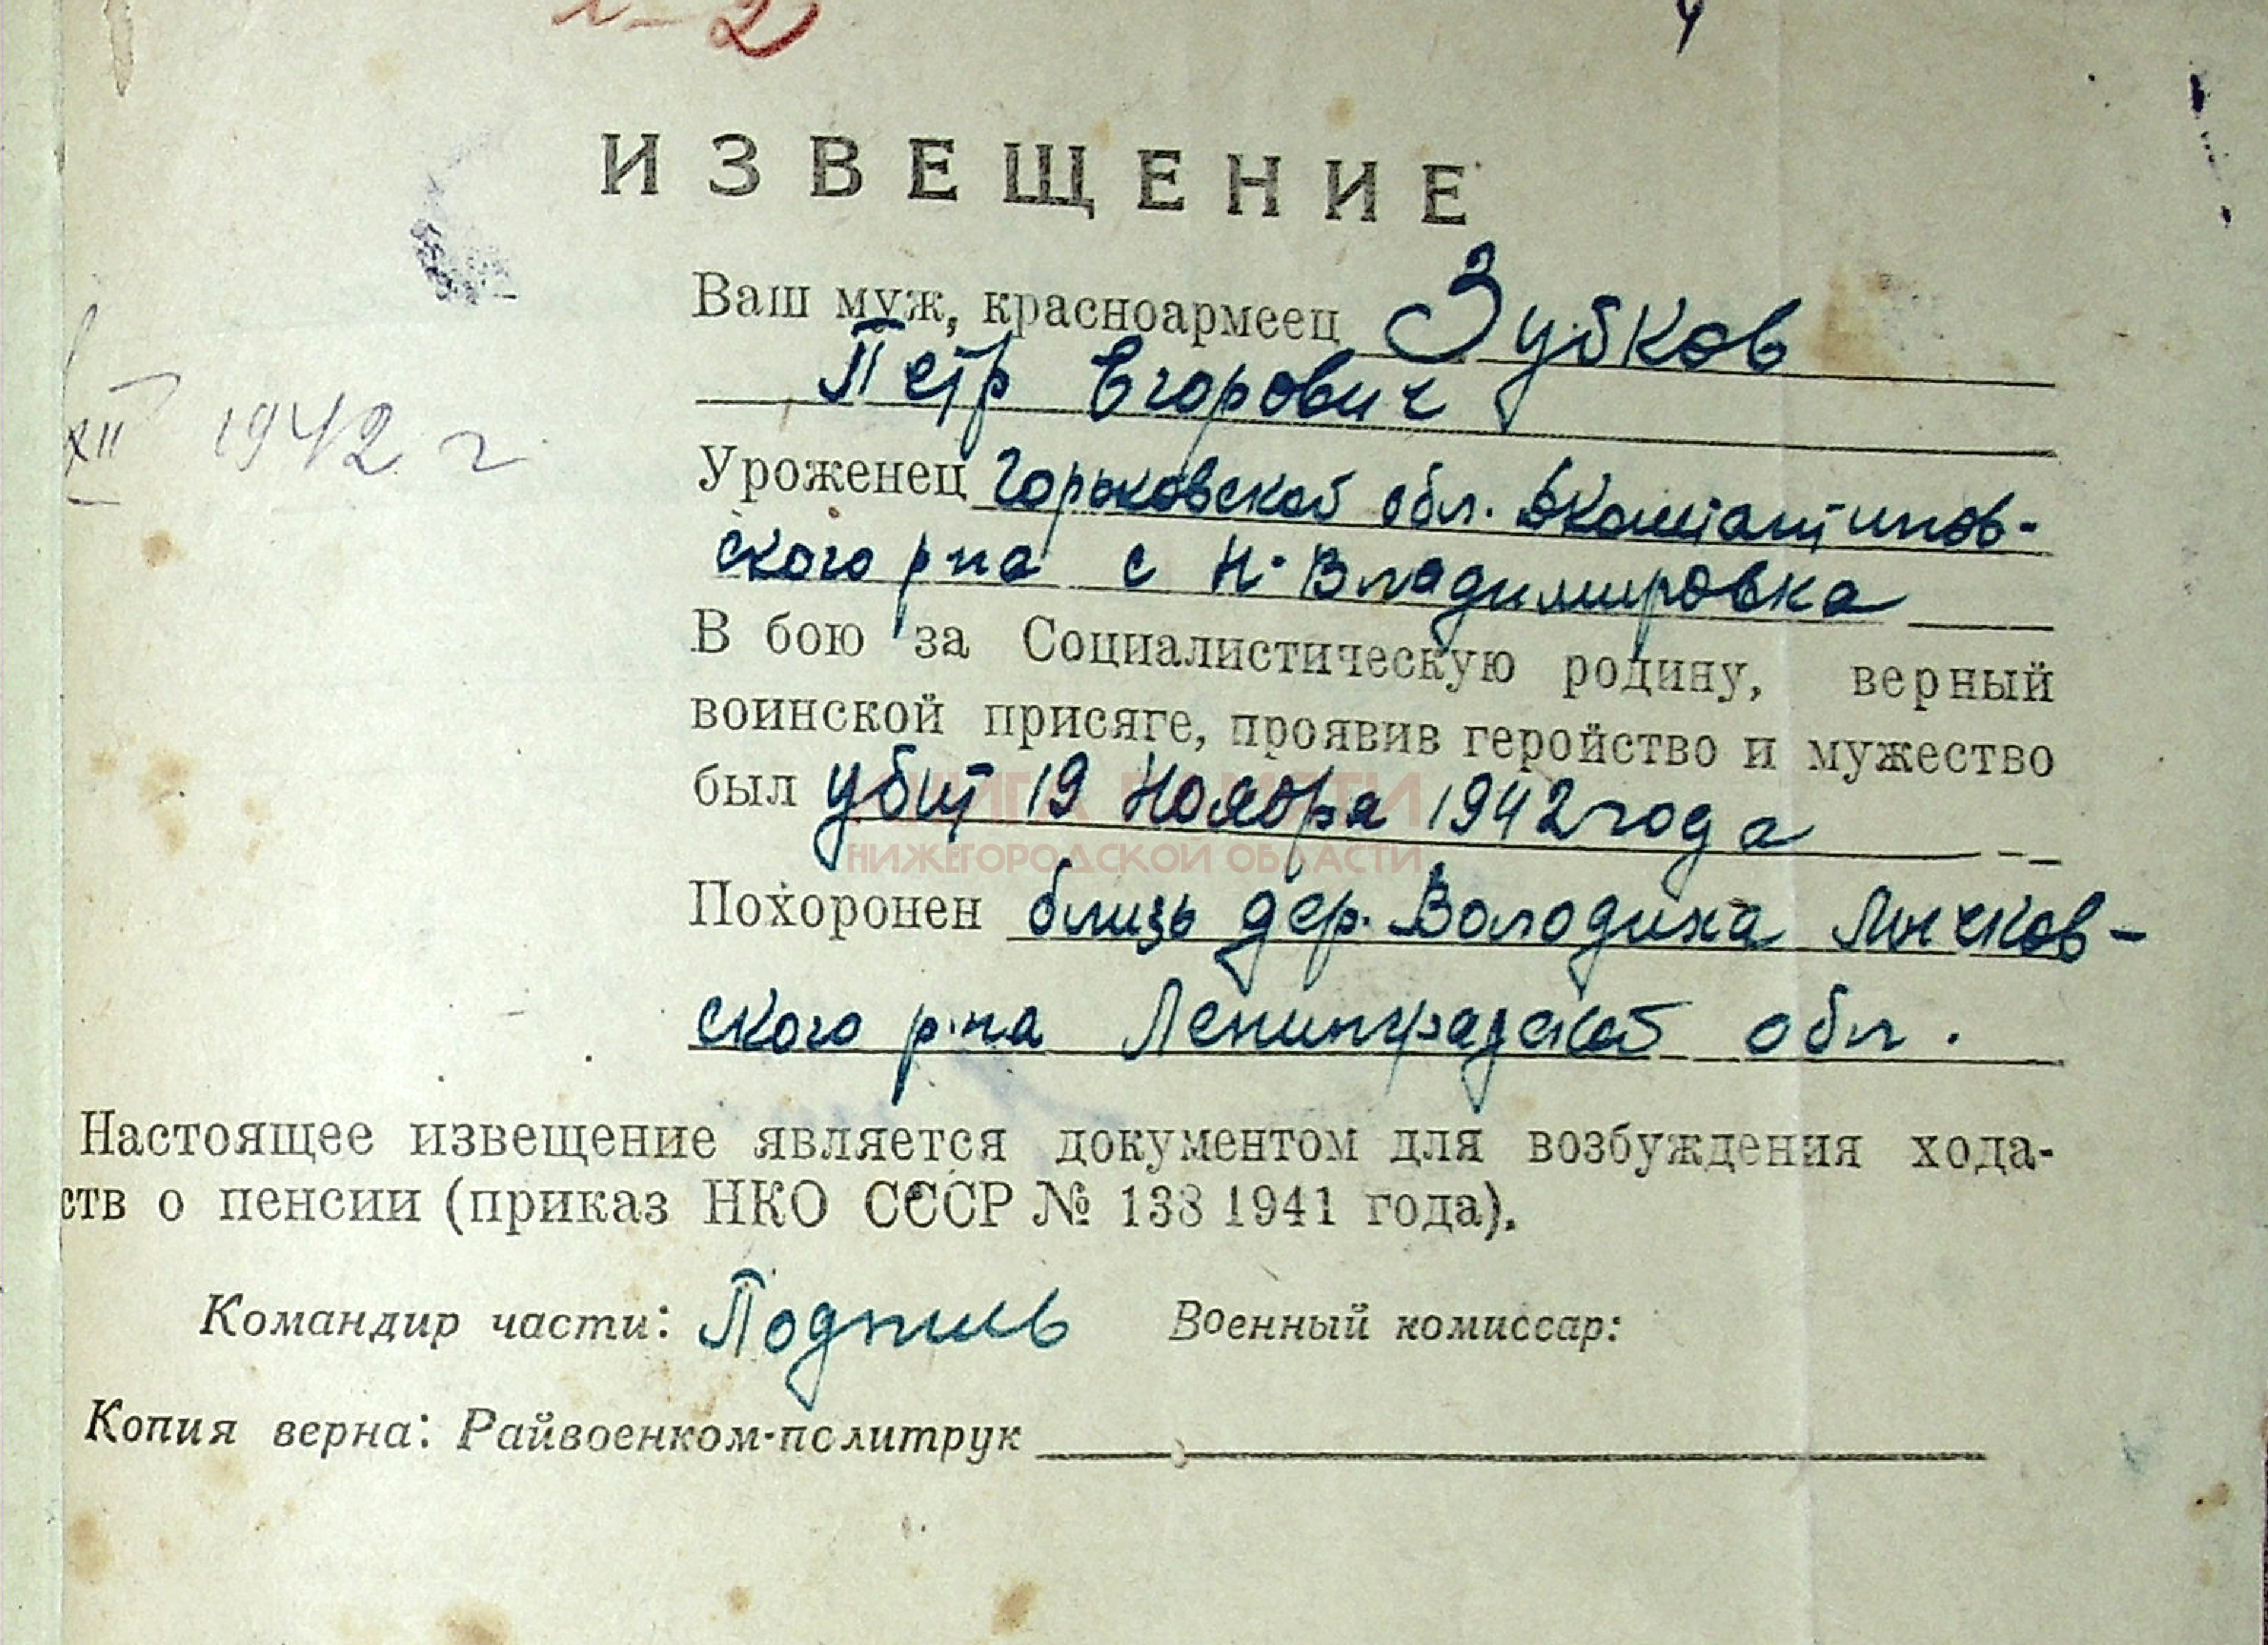 -2
ИЗВЕЩЕНИЕ
Ваш муж, красноармеец Зубков
Петр Егорович
XII 1942 г
Уроженец Горьковской обл. Бконстантинов-
ского р на с Н-Владимировка
В бою за Социалистическую родину, верный
воинской присяге, проявив геройство и мужество
был убит 19 Ноября 1942 года
КНИГА ПАМЯТИ
НИЖЕГОРОДСКОЙ ОБЛАСТИ
Похоронен близь дер. Володиха Лычков-
ского р-на Ленинградской обл.
Настоящее извещение является документом для возбуждения хода-
ств о пенсии (приказ НКО СССР № 138 1941 года).
Командир части: Подпись Военный комиссар:
Копия верна: Райвоенком-политрук